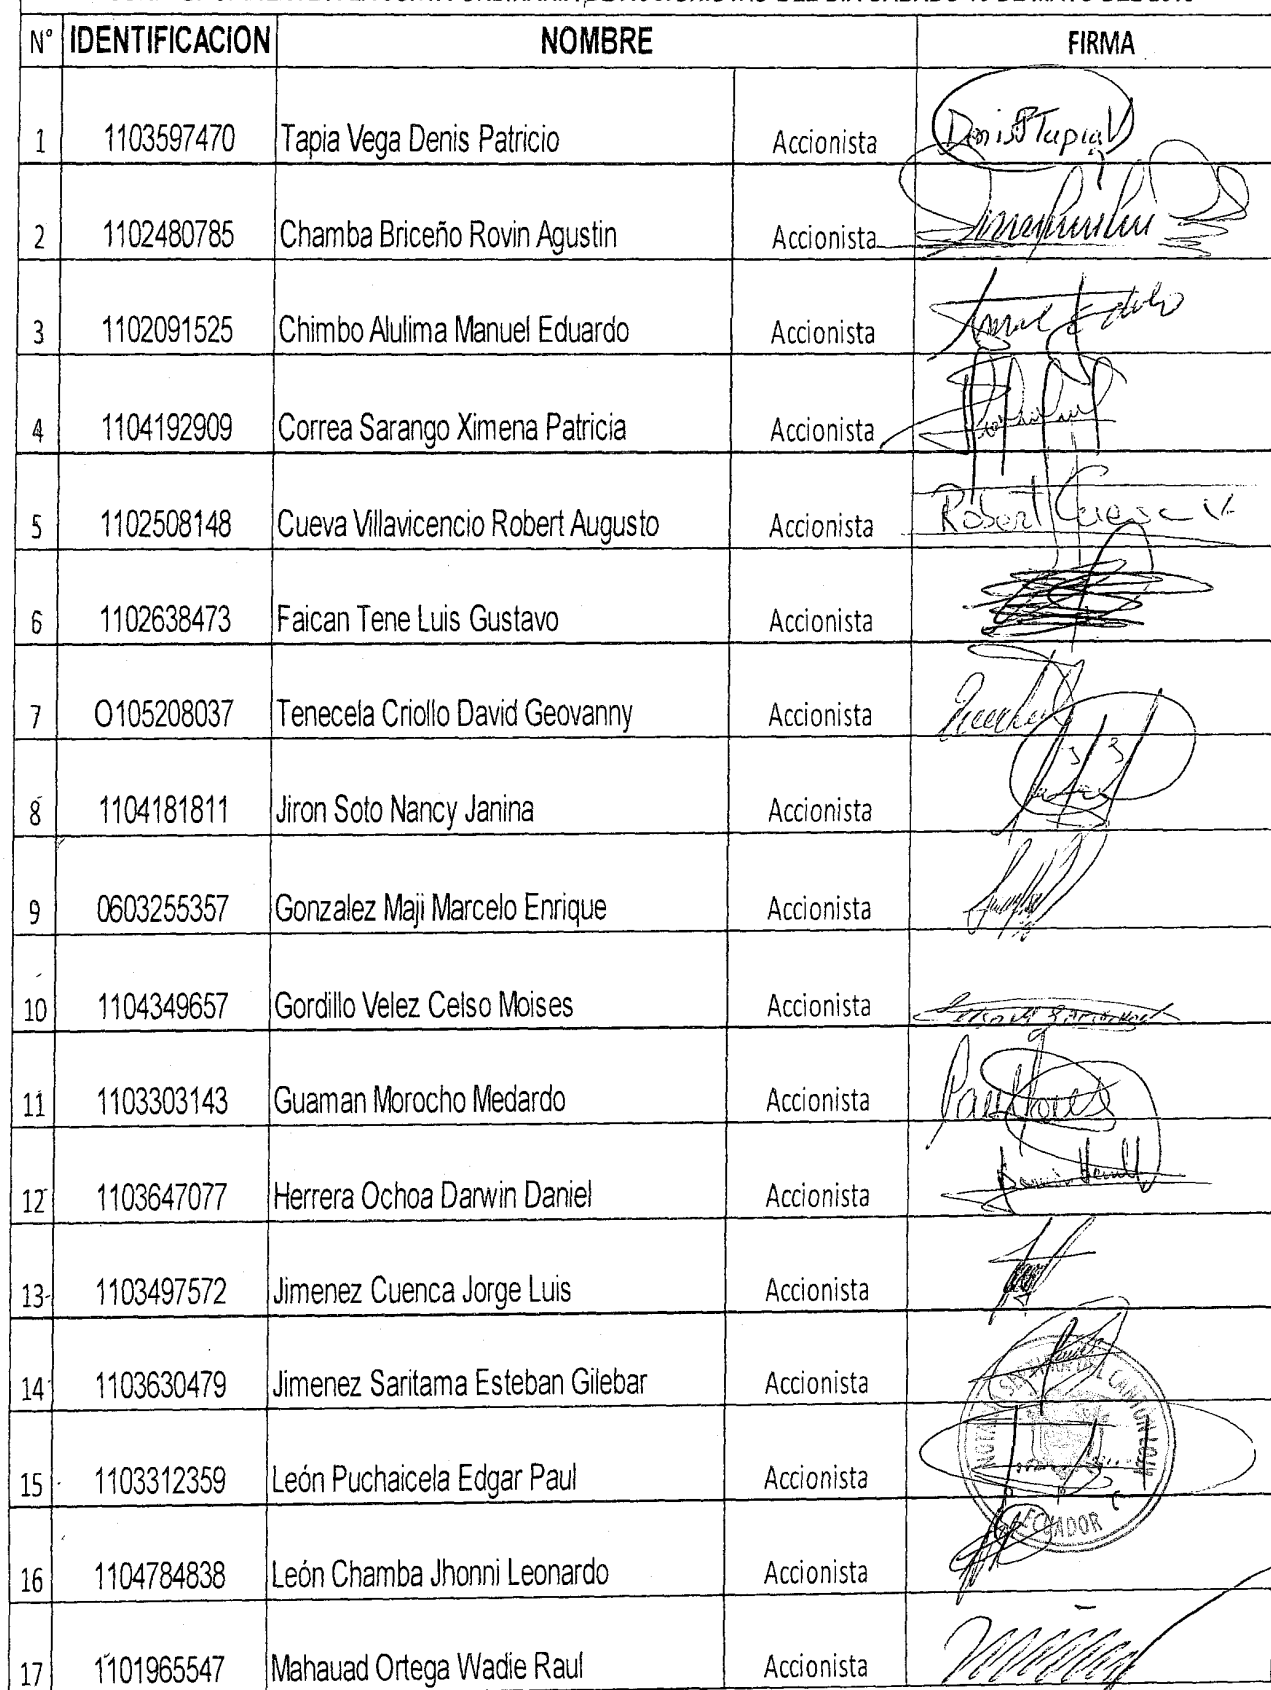 ORDINARIA DE ACCIONISTAS DEL DIA SABADO
N° IDENTIFICACION NOMBRE FIRMA
1 1103597470 Tapia Vega Denis Patricio Accionista Denis P Tapia V
2 1102480785 Chamba Briceño Rovin Agustin Accionista
3 1102091525 Chimbo Alulima Manuel Eduardo Accionista
4 1104192909 Correa Sarango Ximena Patricia Accionista
5 1102508148 Cueva Villavicencio Robert Augusto Accionista Robert Cueva V.
6 1102638473 Faican Tene Luis Gustavo Accionista
7 O105208037 Tenecela Criollo David Geovanny Accionista
8 1104181811 Jiron Soto Nancy Janina Accionista
9 0603255357 Gonzalez Maji Marcelo Enrique Accionista
10 1104349657 Gordillo Velez Celso Moises Accionista
11 1103303143 Guaman Morocho Medardo Accionista
12 1103647077 Herrera Ochoa Darwin Daniel Accionista
13 1103497572 Jimenez Cuenca Jorge Luis Accionista
14 1103630479 Jimenez Saritama Esteban Gilebar Accionista
15 1103312359 León Puchaicela Edgar Paul Accionista
ECUADOR
16 1104784838 León Chamba Jhonni Leonardo Accionista
17 1101965547 Mahauad Ortega Wadie Raul Accionista